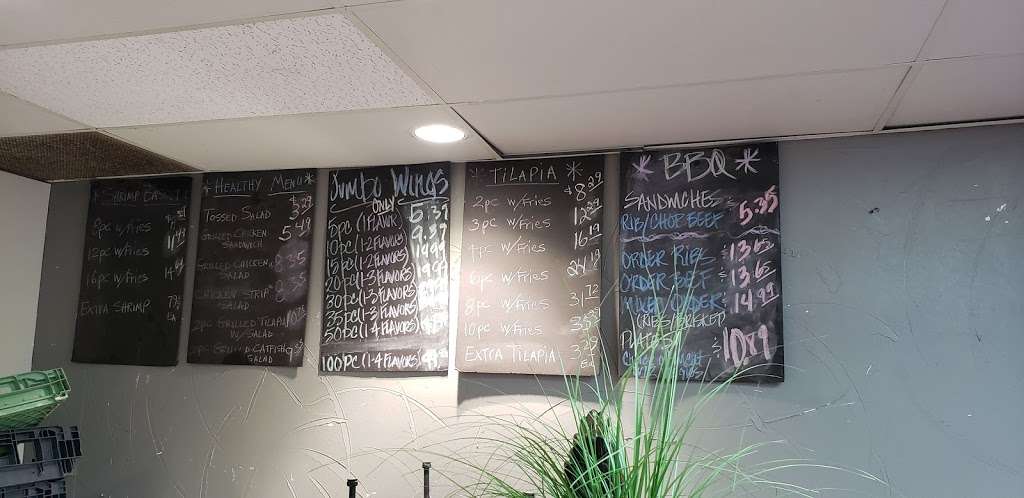 SHRIMP BASKET
8pc w/Fries
12pc w/Fries
16pc w/Fries
EXTRA SHRIMP
* HEALTHY MENU *
TOSSED SALAD
GRILLED CHICKEN 5.49
SANDWICH
GRILLED CHICKEN
SALAD
CHICKEN STRIP
SALAD
2pc GRILLED TILAPIA
W/SALAD
GRILLED CATFISH
SALAD
JUMBO WINGS
ONLY
5pc (1 FLAVOR) 5.39
10pc (1-2 FLAVORS) 9.39
15pc (1-2 FLAVORS)
20pc (1-3 FLAVORS)
30pc (1-3 FLAVORS)
35pc (1-3 FLAVORS)
50pc (1-4 FLAVORS)
100pc (1-4 FLAVORS)
* TILAPIA *
2pc w/Fries $8.29
3pc w/Fries
4pc w/Fries 16.19
6pc w/Fries 24.19
8pc w/Fries 31.72
10pc w/Fries
EXTRA TILAPIA 3.29
EA
* BBQ *
SANDWICHES
RIB/CHOP BEEF $5.35
ORDER RIBS $13.65
ORDER BEEF $13.65
MIXED ORDER $14.99
(RIBS/BRISKET)
PLATES